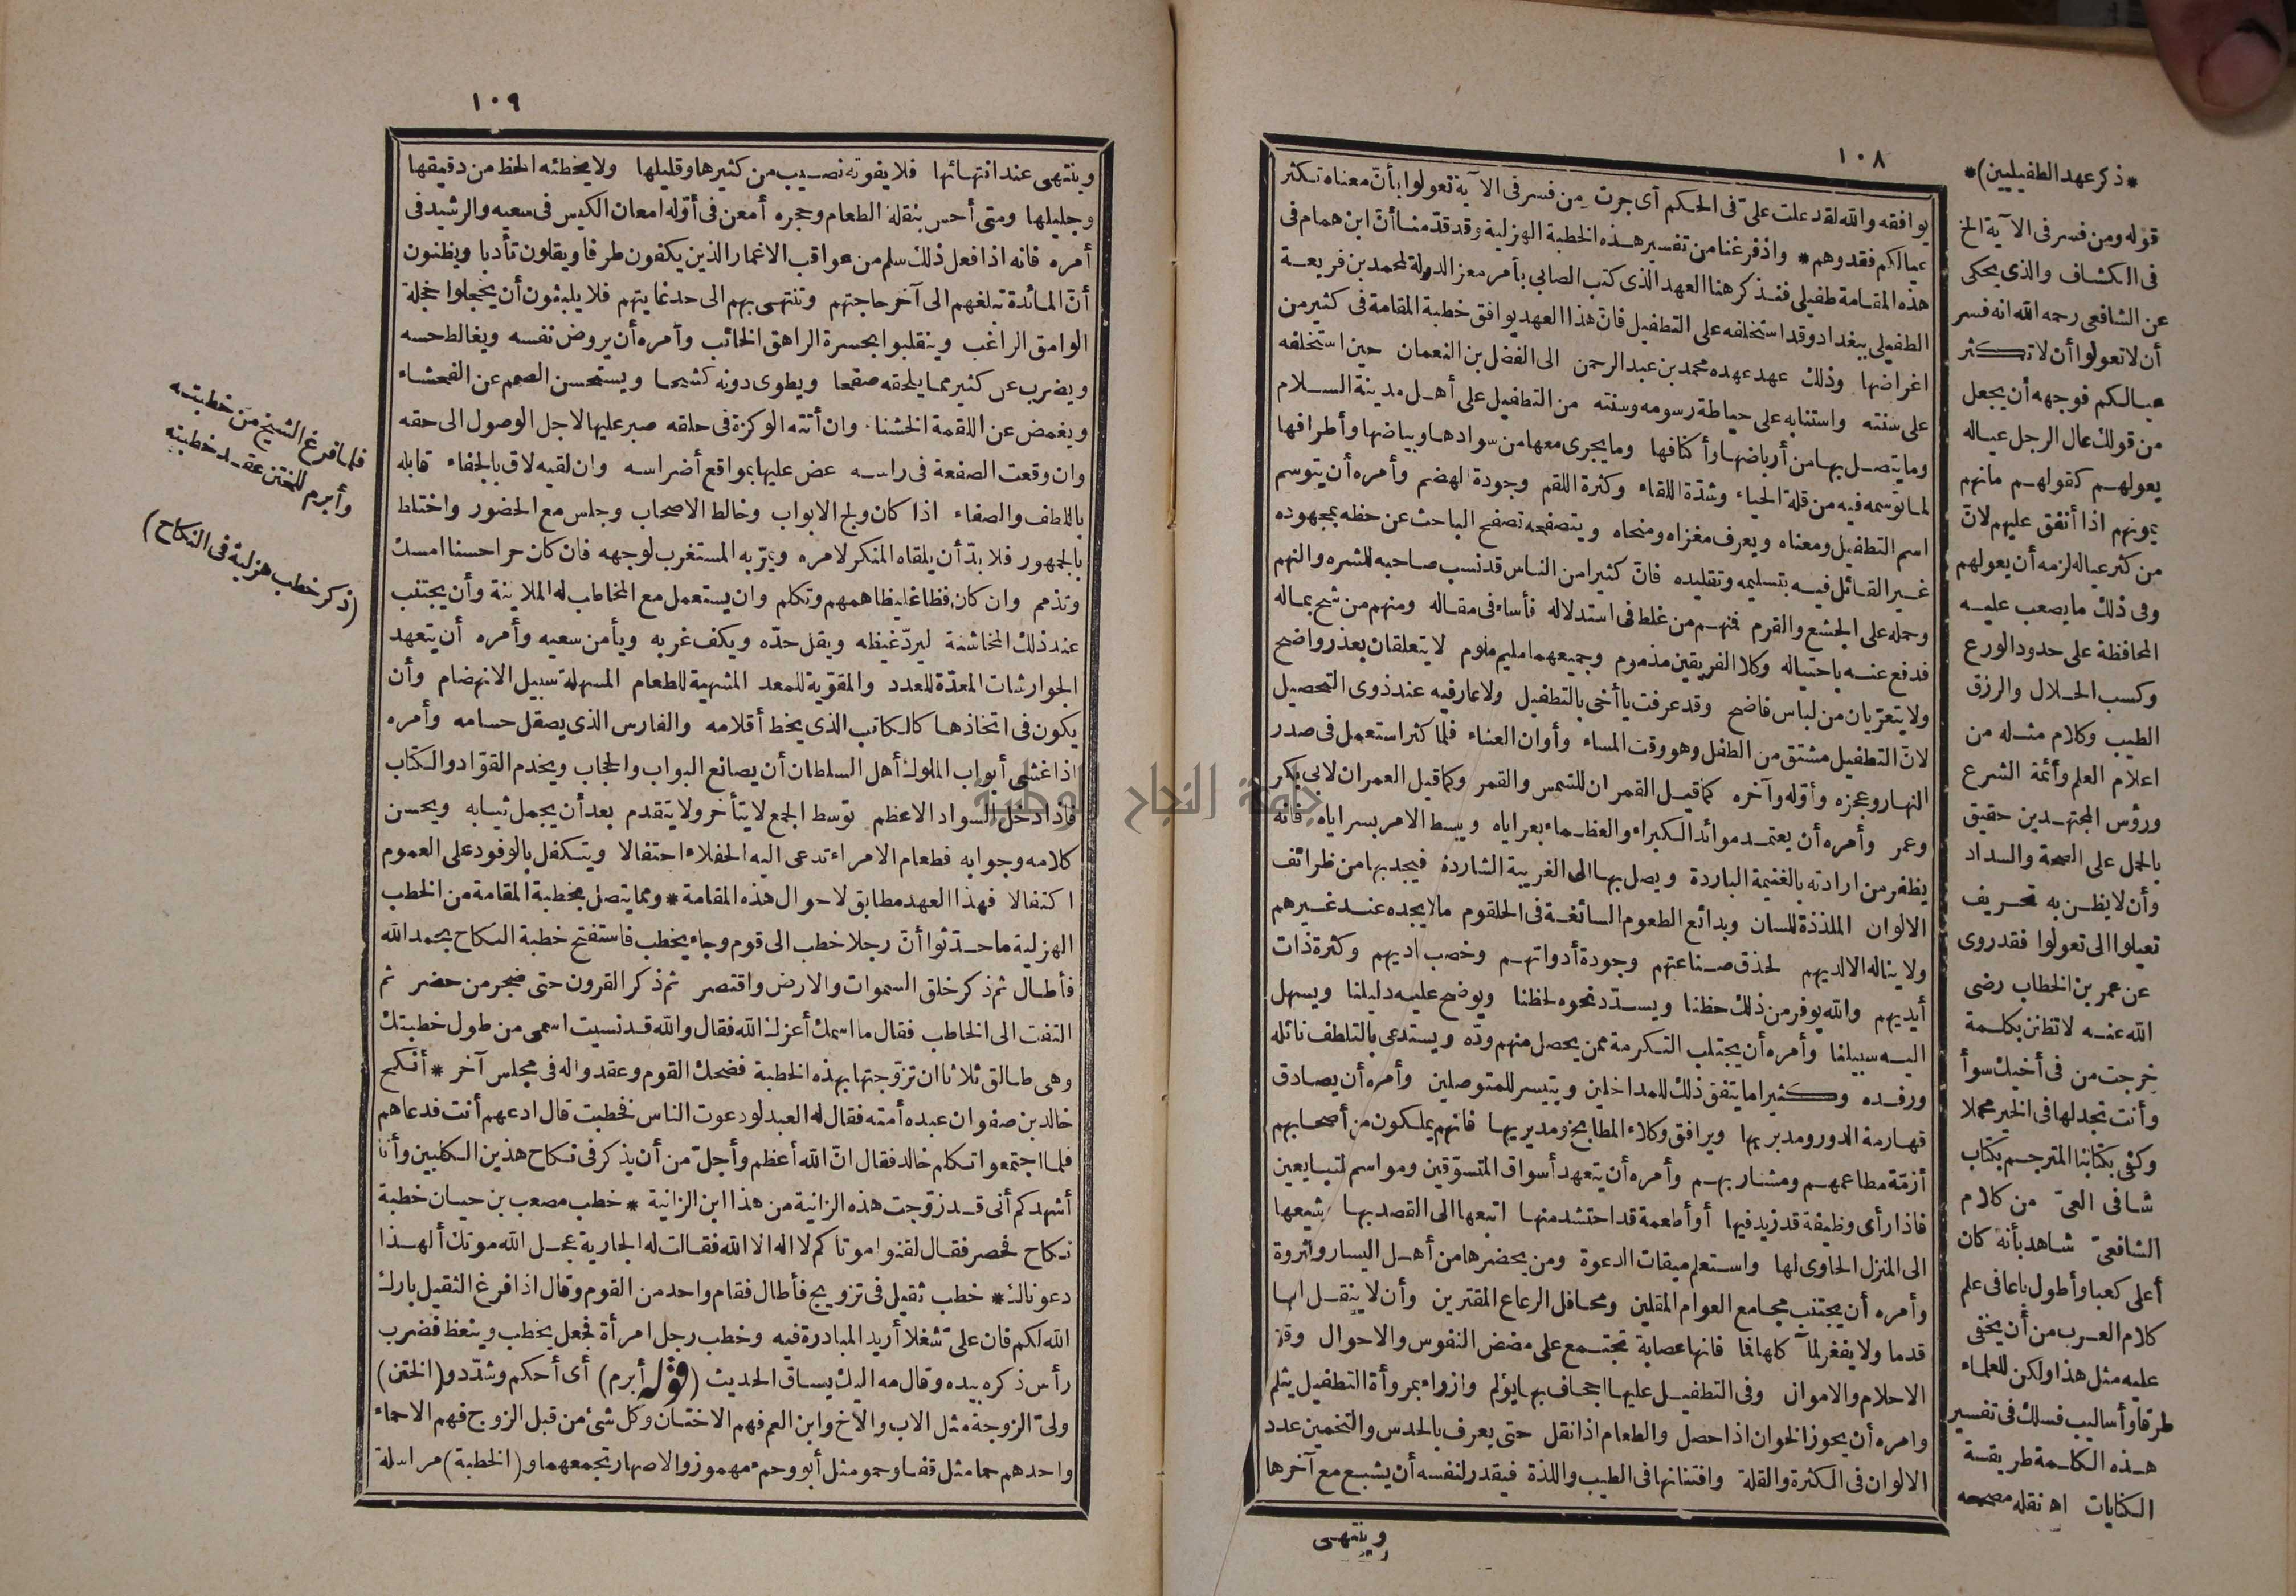 ١٠٨
يوافقه والله لقد علت علىّ فى الحكم أى جرت ومن فسر فى الآية تعولوا بأنّ معناه تكثر
عيالكم فقد وهم * واذ فرغنا من تفسير هذه الخطبة الهزلية وقد قدّمنا أنّ ابن همام فى
هذه المقامة طفيلى فنذكر هنا العهد الذى كتب الصابى بأمر معز الدولة لمحمد بن قريعة
الطفيلى ببغداد وقد استخلفه على التطفيل فانّ هذا العهد يوافق خطبة المقامة فى كثير من
اغراضها وذلك عهد عهده محمد بن عبد الرحمن الى الفضل بن النعمان حين استخلفه
على سنته واستنابه على حياطة رسومه وسنته من التطفيل على أهل مدينة السلام
وما يتصل بها من أرباضها وأكنافها وما يجرى معها من سوادها وبياضها وأطرافها
لما توسمه فيه من قلة الحياء وشدّة اللقاء وكثرة اللقم وجودة الهضم وأمره أن يتوسم
اسم التطفيل ومعناه ويعرف مغزاه ومنحاه ويتصفحه تصفح الباحث عن حظه بمجهوده
غير القائل فيه بتسليمه وتقليده فانّ كثيرا من الناس قد نسب صاحبه للشره والنهم
وحمله على الجشع والقرم فمنهم من غلط فى استدلاله فأساء فى مقاله ومنهم من شح بماله
فدفع عنه باحتياله وكلا الفريقين مذموم وجميعهما مليم ملوم لا يتعلقان بعذر واضح
ولا يتعرّيان من لباس فاضح وقد عرفت يا أخى بالتطفيل ولا عار فيه عند ذوى التحصيل
لانّ التطفيل مشتق من الطفل وهو وقت المساء وأوان العشاء فلما كثر استعمل فى صدر
النهار وعجزه وأوّله وآخره كما قيل القمران للشمس والقمر وكما قيل العمران لابى بكر
وعمر وأمره أن يعتمد موائد الكبراء والعظماء بعراياه ويبسط الامر بسراياه فانه
يظفر من ارادته بالغنيمة الباردة ويصل بها الى الغريبة الشاردة فيجد بها من ظرائف
الالوان الملذذة للسان وبدائع الطعوم السائغة فى الحلقوم ما لا يجده عند غيرهم
ولا يناله الا لديهم لحذق صناعتهم وجودة أدواتهم وخصب اديهم وكثرة ذات
أيديهم والله يوفر من ذلك حظنا ويسدّد نحوه لحظنا ويوضح عليه دليلنا ويسهل
اليه سبيلنا وأمره أن يجتلب التكرمة ممن يحصل منهم ودّه ويستدعى بالتلطف نائله
ورفده وكثيرا ما يتفق ذلك للمداخلين ويتيسر للمتوصلين وأمره أن يصادق
قهارمة الدور ومدبريها ويرافق وكلاء المطابخ ومديريها فانهم يملكون من أصحابهم
أزمّة مطاعمهم ومشاربهم وأمره أن يتعهد أسواق المتسوّقين ومواسم المتبايعين
فاذا رأى وظيفة قد زيد فيها أو أطعمة قد احتشد منها اتبعها الى القصد بها يشيعها
الى المنزل الحاوى لها واستعلم ميقات الدعوة ومن يحضرها من أهل اليسار والثروة
وأمره أن يجتنب مجامع العوام المقلين ومحافل الرعاع المقترين وأن لا ينقل اليها
قدما ولا يفغر لمآكلها فما فانها عصابة تجتمع على مضض النفوس والاحوال وقلة
الاحلام والاموال وفى التطفيل عليها اجحاف بها يؤلم وازراء بمروأة التطفيل يثلم
وامره أن يحوز الخوان اذا حصل والطعام اذا نقل حتى يعرف بالحدس والتخمين عدد
الالوان فى الكثرة والقلة وافتنانها فى الطيب واللذة فيقدر لنفسه أن يشبع مع آخرها
وينتهى
*ذكر عهد الطفيليين)*
قوله ومن فسر فى الآية الخ
فى الكشاف والذى يحكى
عن الشافعى رحمه الله انه فسر
أن لا تعولوا أن لا تكثر
عيالكم فوجهه أن يجعل
من قولك عال الرجل عياله
يعولهم كقولهم مانهم
يمونهم اذا أنفق عليهم لانّ
من كثر عياله لزمه أن يعولهم
وفى ذلك ما يصعب عليه
المحافظة على حدود الورع
وكسب الحلال والرزق
الطيب وكلام مثله من
اعلام العلم وأئمة الشرع
ورؤس المجتهدين حقيق
بالحمل على الصحة والسداد
وأن لا يظن به تحريف
تعيلوا الى تعولوا فقد روى
عن عمر بن الخطاب رضى
الله عنه لا تظنن بكلمة
خرجت من فى أخيك سوأ
وأنت تجد لها فى الخير محملا
وكفى بكتابنا المترجم بكتاب
شافى العىّ من كلام
الشافعىّ شاهدا بأنه كان
أعلى كعبا وأطول باعا فى علم
كلام العرب من أن يخفى
عليه مثل هذا ولكن للعلماء
طرقا وأساليب فسلك فى تفسير
هذه الكلمة طريقة
الكنايات اه نقله مصححه
١٠٩
وينتهى عند انتهائها فلا يفوته نصيب من كثيرها وقليلها ولا يخطئه الحظ من دقيقها
وجليلها ومتى أحس بنقلة الطعام وعجزه أمعن فى أوّله امعان الكيس فى سعيه والرشيد فى
أمره فانه اذا فعل ذلك سلم من عواقب الاغمار الذين يكفون طرفا ويقلون تأدبا ويظنون
أنّ المائدة تبلغهم الى آخر حاجتهم وتنتهى بهم الى حد غايتهم فلا يلبثون أن يخجلوا خجلة
الوامق الراغب وينقلبوا بحسرة الراهق الخائب وآمره أن يروض نفسه ويغالط حسه
ويضرب عن كثير مما يلحقه صفحا ويطوى دونه كشيحا ويستحسن الصمم عن الفحشاء
ويغمض عن اللقمة الخشنا. وان أتته الوكزة فى حلقه صبر عليها لاجل الوصول الى حقه
وان وقعت الصفعة فى راسه عض عليها بمواقع أضراسه وان لقيه لاق بالجفاء قابله
باللطف والصفاء اذا كان ولج الابواب وخالط الاصحاب وجلس مع الحضور واختلط
بالجمهور فلا بدّ أن يلقاه المنكر لامره ويمرّ به المستغرب لوجهه فان كان حرا حسنا امسك
وتذمم وان كان فظا غليظا همهم وتكلم وان يستعمل مع المخاطب له الملاينة وأن يجتنب
عند ذلك المخاشنة ليردّ غيظه ويفل حدّه ويكف غربه ويأمن سعيه وأمره أن يتعهد
الجوارشات المعدّة للعدد والمقوّية للمعد المشهية للطعام المسهلة سبيل الانهضام وأن
يكون فى اتخاذها كالكاتب الذى يخط أقلامه والفارس الذى يصقل حسامه وأمره
اذا غشى أبواب الملوك أهل السلطان أن يصانع البواب والحجاب ويخدم القوّاد والكتاب
فاذا دخل السواد الاعظم توسط الجمع لا يتأخر ولا يتقدم بعد أن يجمل ثيابه ويحسن
كلامه وجوابه فطعام الامراء تدعى اليه الجفلاء احتفالا ويتكفل بالوفود على العموم
اكتفالا فهذا العهد مطابق لاحوال هذه المقامة * ومما يتصل بخطبة المقامة من الخطب
الهزلية ما حدّثوا أنّ رجلا خطب الى قوم وجاء يخطب فاستفتح خطبة النكاح بحمد الله
فأطال ثم ذكر خلق السموات والارض واقتصر ثم ذكر القرون حتى ضجر من حضر ثم
التفت الى الخاطب فقال ما اسمك أعزك الله فقال والله قد نسيت اسمى من طول خطبتك
وهى طالق ثلاثا ان تزوّجتها بهذه الخطبة فضحك القوم وعقدوا له فى مجلس آخر * أنكح
خالد بن صفوان عبده أمته فقال له العبد لو دعوت الناس فخطبت قال ادعهم أنت فدعاهم
فلما اجتمعوا تكلم خالد فقال انّ الله أعظم وأجلّ من أن يذكر فى نكاح هذين الكلبين وأنا
أشهدكم أنى قد زوّجت هذه الزانية من هذا ابن الزانية * خطب مصعب بن حيان خطبة
نكاح فحصر فقال لقنوا موتاكم لا اله الا الله فقالت له الجارية عجل الله موتك ألهذا
دعوناك * خطب ثقيل فى تزويج فأطال فقام واحد من القوم وقال اذا فرغ الثقيل بارك
الله لكم فان علىّ شغلا أريد المبادرة فيه وخطب رجل امرأة فجعل يخطب وينعظ فضرب
رأس ذكره بيده وقال مه اليك يساق الحديث (قوله أبرم) أى أحكم وشدّد و(الختن)
ولىّ الزوجة مثل الاب والاخ وابن العم فهم الاختان وكل شئ من قبل الزوج فهم الاحماء
واحدهم حما مثل قفا وحمو مثل أبو وحمء مهموز والاصهار تجمعهما و(الخطبة) مراسلة
فلما فرغ الشيخ من خطبته
وأبرم للختن عقد خطبته
(ذكر خطب هزلية فى النكاح)